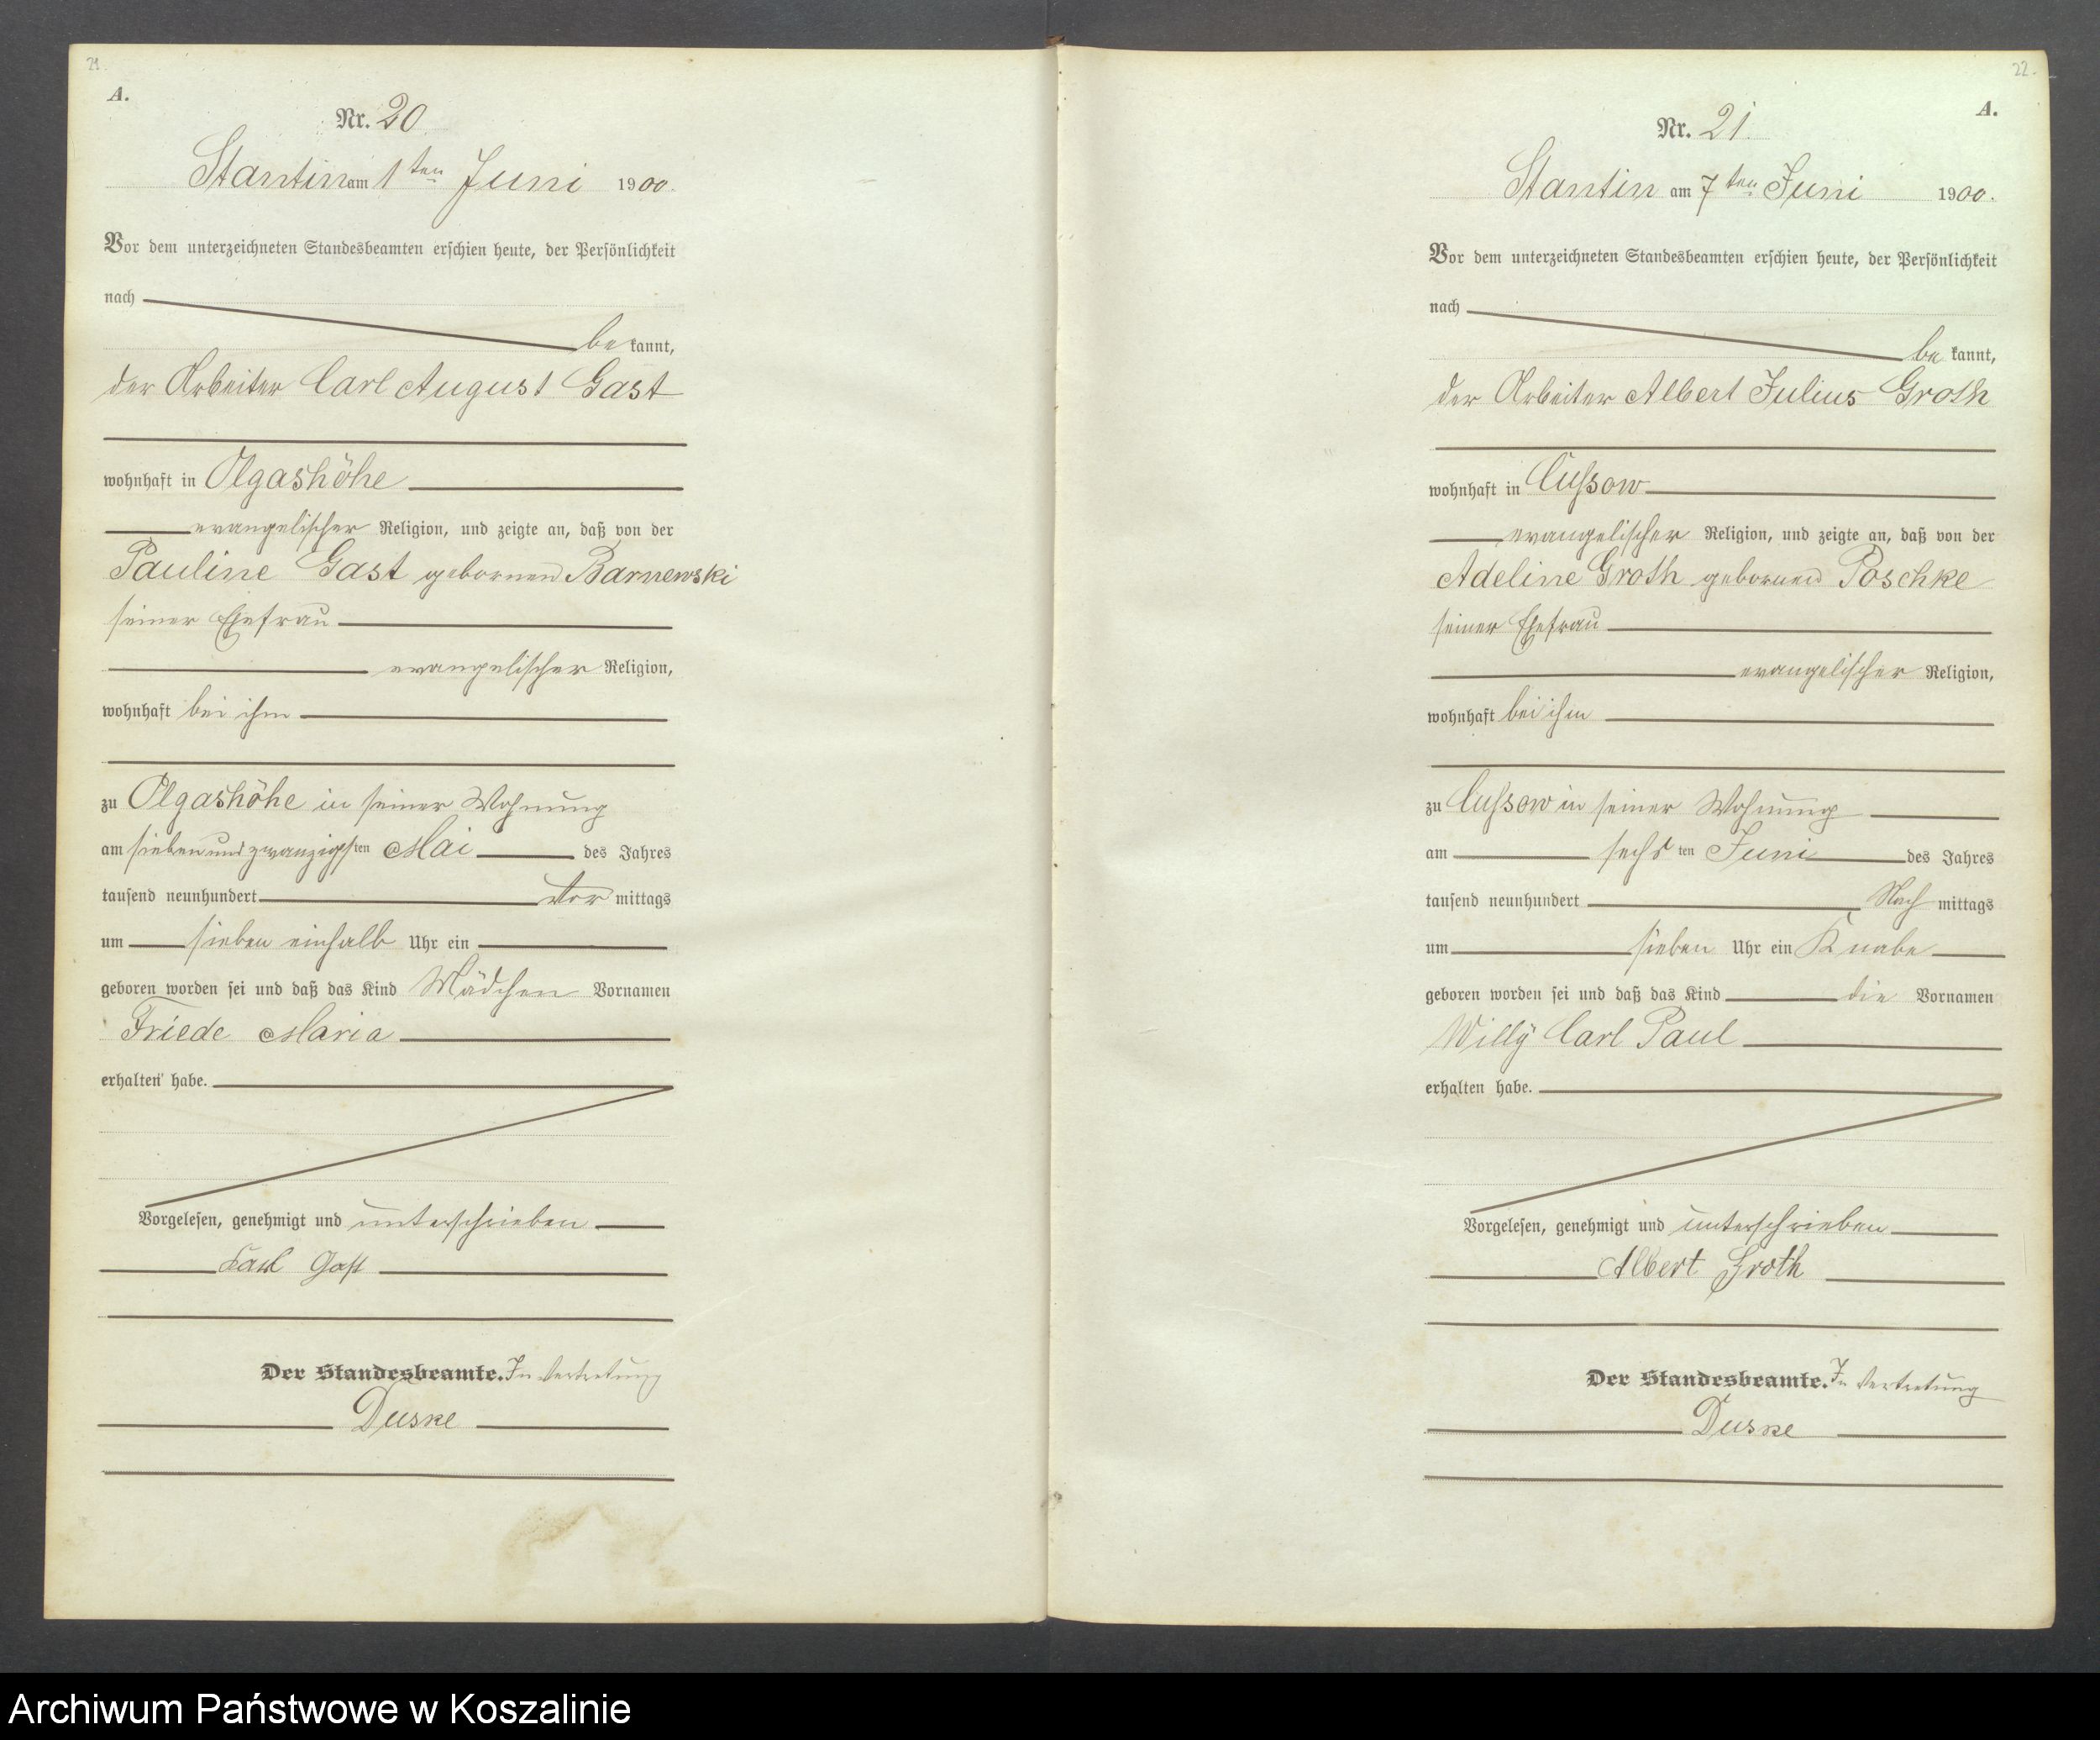 21.
A.
Nr. 20
Stantin am 1ten Juni 1900.
Vor dem unterzeichneten Standesbeamten erschien heute, der Persönlichkeit
nach
be kannt,
der Arbeiter Carl August Gast
wohnhaft in Olgashöhe
evangelischer Religion, und zeigte an, daß von der
Pauline Gast gebornen Barnewski
seiner Ehefrau
evangelischer Religion,
wohnhaft bei ihm
zu Olgashöhe in seiner Wohnung
am siebenundzwanzigsten Mai des Jahres
tausend neunhundert Vor mittags
um sieben einhalb Uhr ein
geboren worden sei und daß das Kind Mädchen Vornamen
Friede Maria
erhalten habe.
Vorgelesen, genehmigt und unterschrieben
Carl Gast
Der Standesbeamte. In Vertretung
Duske
22.
A.
Nr. 21.
Stantin am 7ten Juni 1900.
Vor dem unterzeichneten Standesbeamten erschien heute, der Persönlichkeit
nach
be kannt,
der Arbeiter Albert Julius Groth
wohnhaft in Cussow
evangelischer Religion, und zeigte an, daß von der
Adeline Groth gebornen Poschke
seiner Ehefrau
evangelischer Religion,
wohnhaft bei ihm
zu Cussow in seiner Wohnung
am sechsten Juni des Jahres
tausend neunhundert Nach mittags
um sieben Uhr ein Knabe
geboren worden sei und daß das Kind die Vornamen
Willy Carl Paul
erhalten habe.
Vorgelesen, genehmigt und unterschrieben
Albert Groth
Der Standesbeamte. In Vertretung
Duske
Archiwum Państwowe w Koszalinie